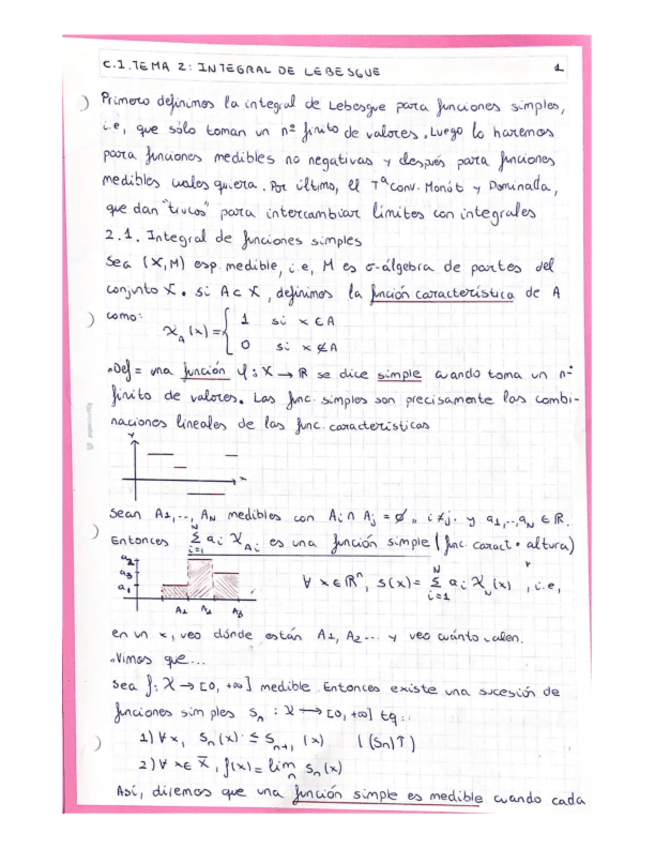 C.I. TEMA 2: INTEGRAL DE LEBESGUE 1
Primero definimos la integral de Lebesgue para funciones simples,
i.e, que sólo toman un nº finito de valores. Luego lo haremos
para funciones medibles no negativas y después para funciones
medibles cualesquiera. Por último, el Tª conv. Monót y Dominada,
que dan "trucos" para intercambiar límites con integrales
2.1. Integral de funciones simples
Sea (X,M) esp. medible, i.e, M es σ-álgebra de partes del
conjunto X. si A⊂X, definimos la función característica de A
como:
χ_A(x) = { 1 si x∈A
0 si x∉A
•Def = una función φ: X → ℝ se dice simple cuando toma un nº
finito de valores. Las func. simples son precisamente las combi-
naciones lineales de las func. características
y
x
Sean A1,..., AN medibles con Ai ∩ Aj = ∅ ,, i≠j. y a1,..,aN ∈ ℝ.
Entonces Σ_{i=1}^{N} ai χ_Ai es una función simple (func. caract • altura)
a2
a3
a1
A1 A2 A3
∀ x∈ℝⁿ, s(x) = Σ_{i=1}^{N} ai χ_N(x) , i.e,
en un x, veo dónde están A1, A2... y veo cuánto valen.
•Vimos que...
Sea f: X → [0, +∞] medible. Entonces existe una sucesión de
funciones simples Sn : X → [0, +∞] tq:
1) ∀x, Sn(x) ≤ Sn+1(x) ((Sn)↑)
2) ∀ x∈ X, f(x) = lim_n Sn(x)
Así, diremos que una función simple es medible cuando cada